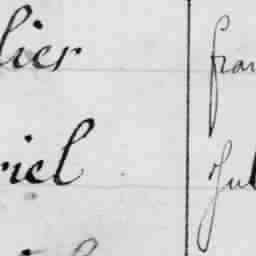 lier fran
riel Jul